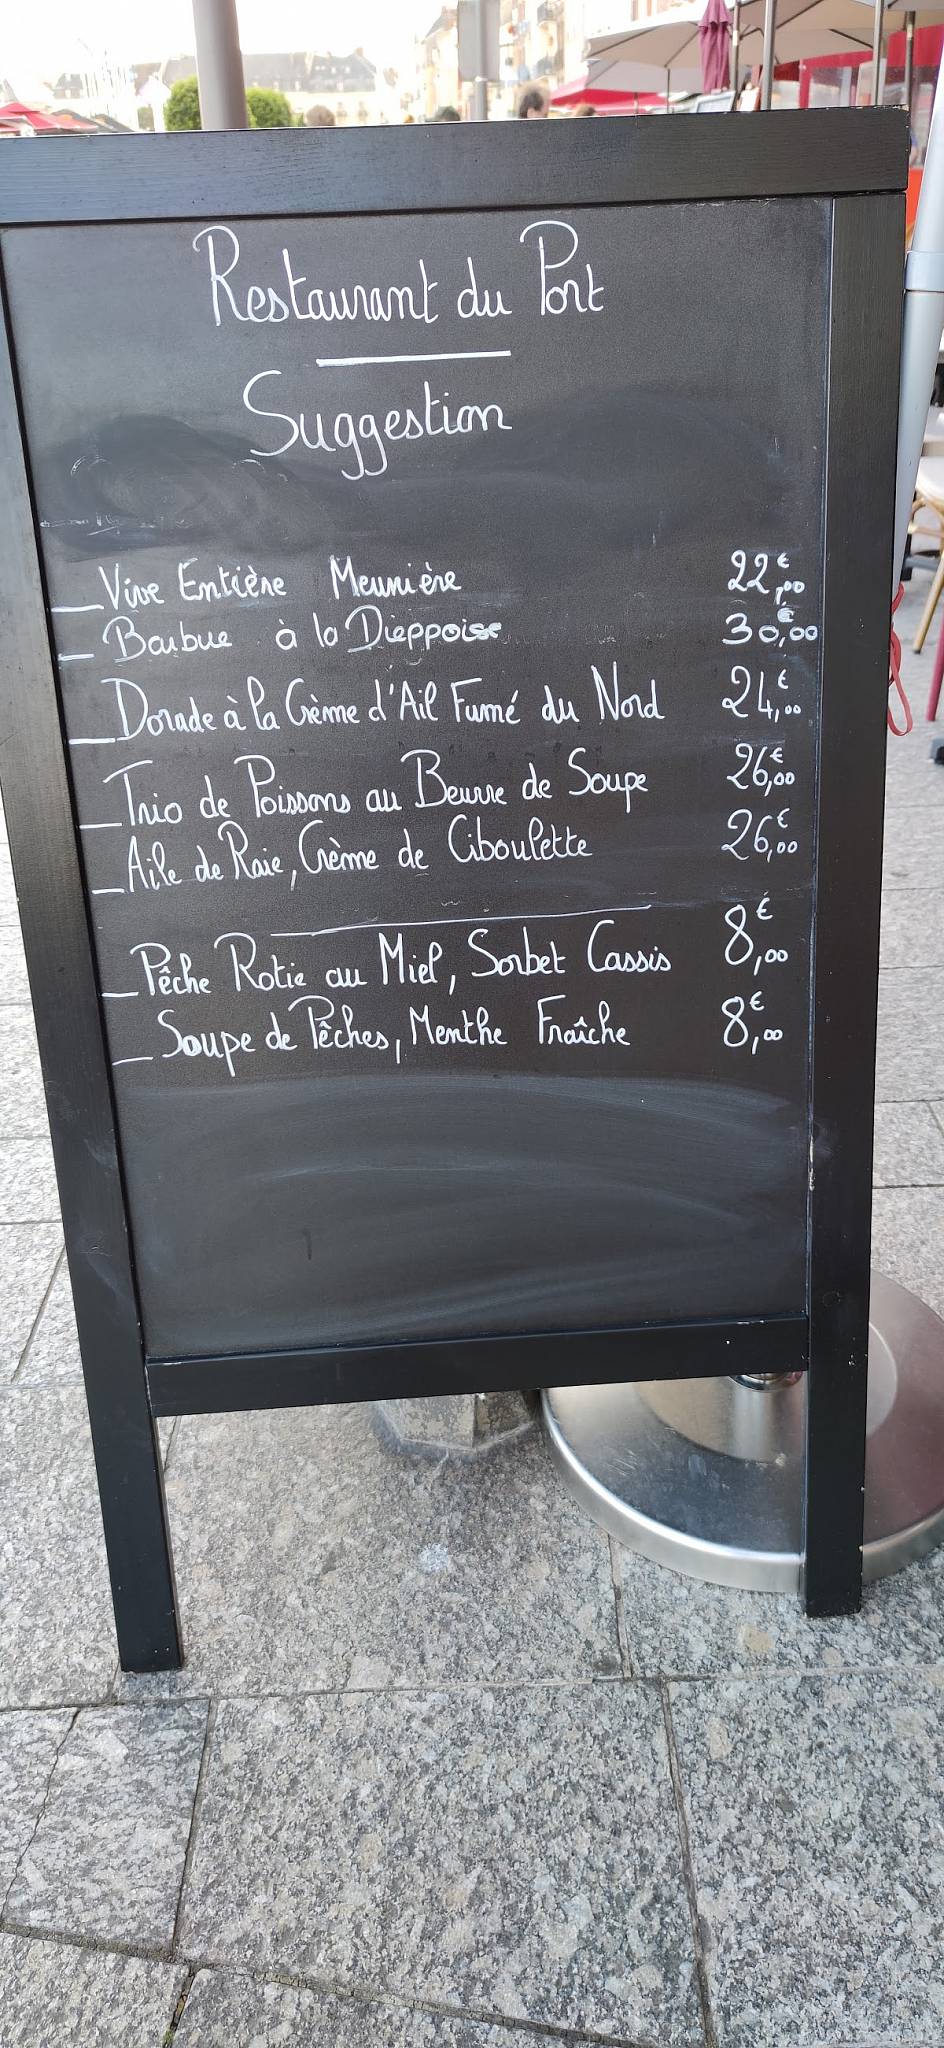 Restaurant du Port
Suggestion
_Vive Entière Meunière 22,00€
_Barbue à la Dieppoise 30,00€
_Dorade à la Crème d'Ail Fumé du Nord 24,00€
_Trio de Poissons au Beurre de Soupe 26,00€
_Aile de Raie, Crème de Ciboulette 26,00€
_Pêche Rotie au Miel, Sorbet Cassis 8,00€
_Soupe de Pêches, Menthe Fraîche 8,00€